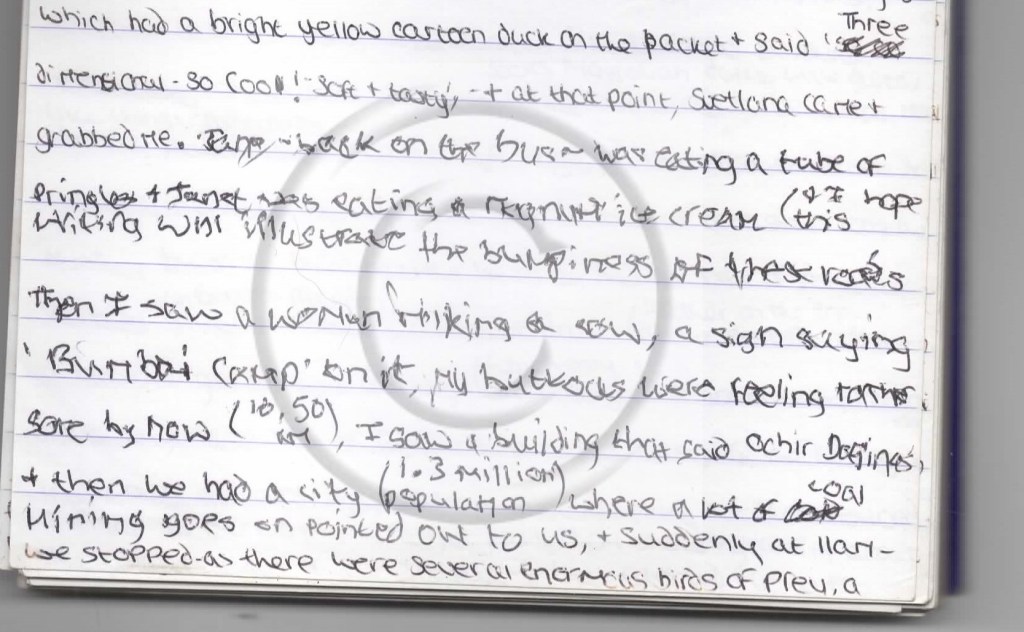 which had a bright yellow cartoon duck on the packet + said 'Three
dimensional - so cool! Soft + tasty', - + at that point, Svetlana came +
grabbed me. back on the bus ~ was eating a tube of
pringles + Janet was eating a magnum ice cream (+ I hope this
writing will illustrate the bumpiness of these roads
then I saw a woman milking a cow, a sign saying
'Bumbai Camp' on it, my buttocks were feeling rather
sore by now (10,50 am), I saw a building that said ochir
+ then we had a city (1.3 million population) where a lot of coal
mining goes on pointed out to us, + suddenly at 11am -
we stopped - as there were several enormous birds of prey, a